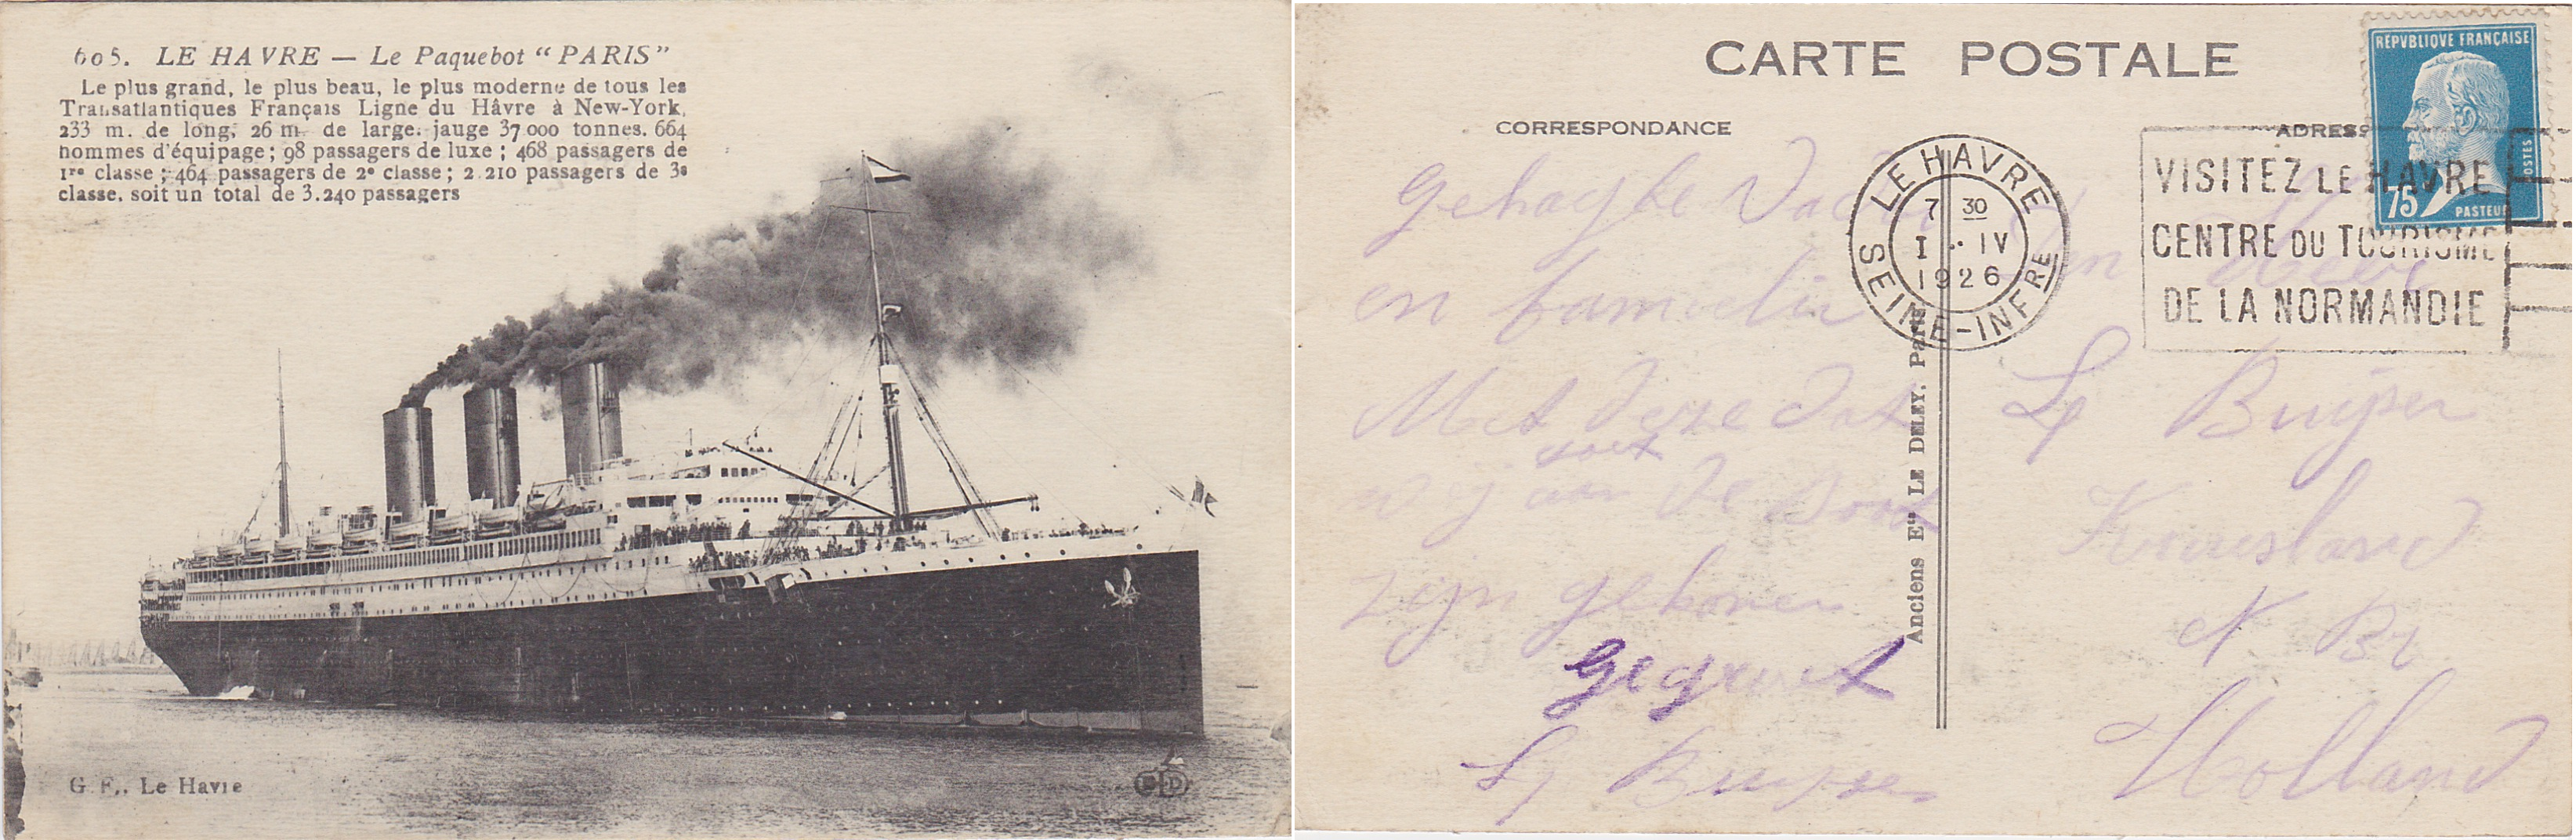 605. LE HAVRE — Le Paquebot “PARIS”
Le plus grand, le plus beau, le plus moderne de tous les
Transatlantiques Français Ligne du Hâvre à New-York,
233 m. de long, 26 m. de large. jauge 37 000 tonnes. 664
hommes d'équipage ; 98 passagers de luxe ; 468 passagers de
1re classe ; 464 passagers de 2e classe ; 2 210 passagers de 3e
classe. soit un total de 3.240 passagers
G. F., Le Havre
CARTE POSTALE
CORRESPONDANCE
ADRESS
RÉPVBLIQVE FRANÇAISE
POSTES
75
PASTEUR
LE HAVRE
7 30
I . IV
1926
SEINE-INFRE
VISITEZ LE HAVRE
CENTRE DU TOURISME
DE LA NORMANDIE
Anciens Ets LE DELEY, Paris
en familie
Met deze dat
wij aan de boot
zijn gekomen
gegroet
Buijsen
N Br
Holland